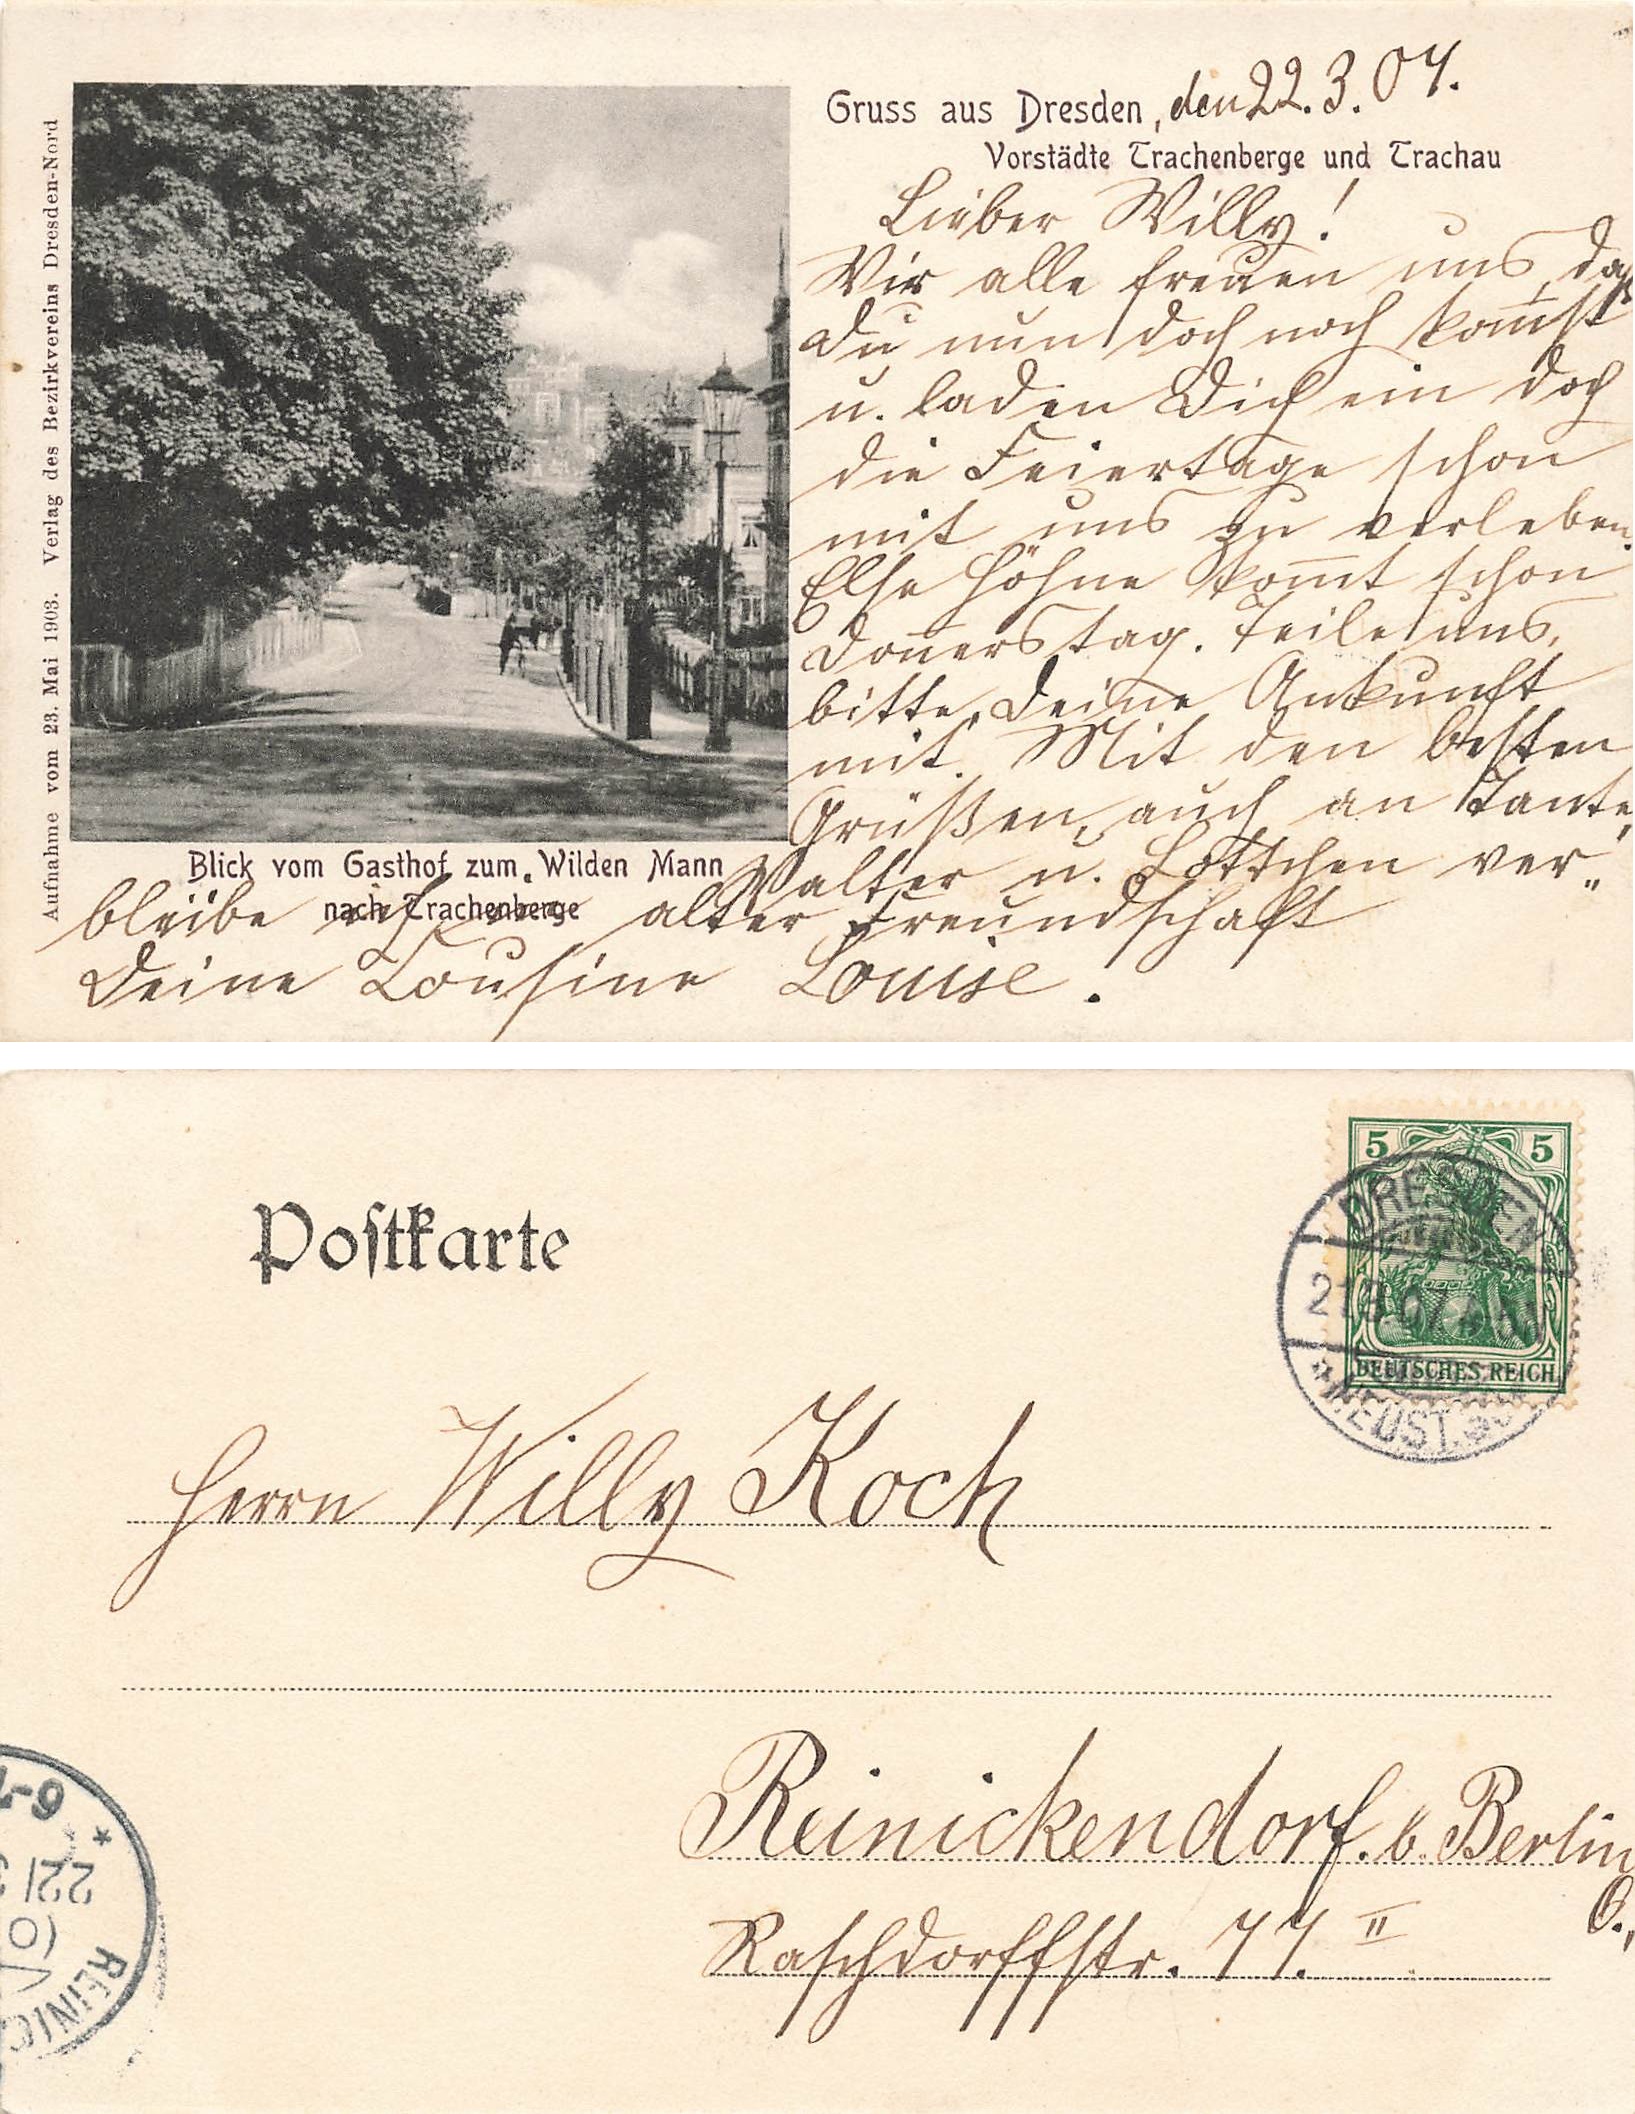 Gruss aus Dresden, den 22. 3. 07.
Vorstädte Trachenberge und Trachau
Aufnahme vom 23. Mai 1903. Verlag des Bezirkvereins Dresden-Nord
Lieber Willy!
Wir alle freuen uns, daß
Du nun doch noch kom̅st
u. laden Dich ein doch
die Feiertage schon
mit uns zu verleben.
Else Höhne kom̅t schon
Don̅erstag. Teile uns,
bitte, Deine Ankunft
mit. Mit den besten
Grüßen, auch an Tante,
Walter u. Lottchen ver-
Blick vom Gasthof zum Wilden Mann
nach Trachenberge
bleibe in alter Freundschaft
Deine Cousine Louise.
Postkarte
5 5
DEUTSCHES REICH
DRESDEN
21.3.07.
*NEUST.
Herrn Willy Koch
Reinickendorf. b. Berlin
O.,
Raschdorffstr. 77. II
6-7
22/3
07
REINIC